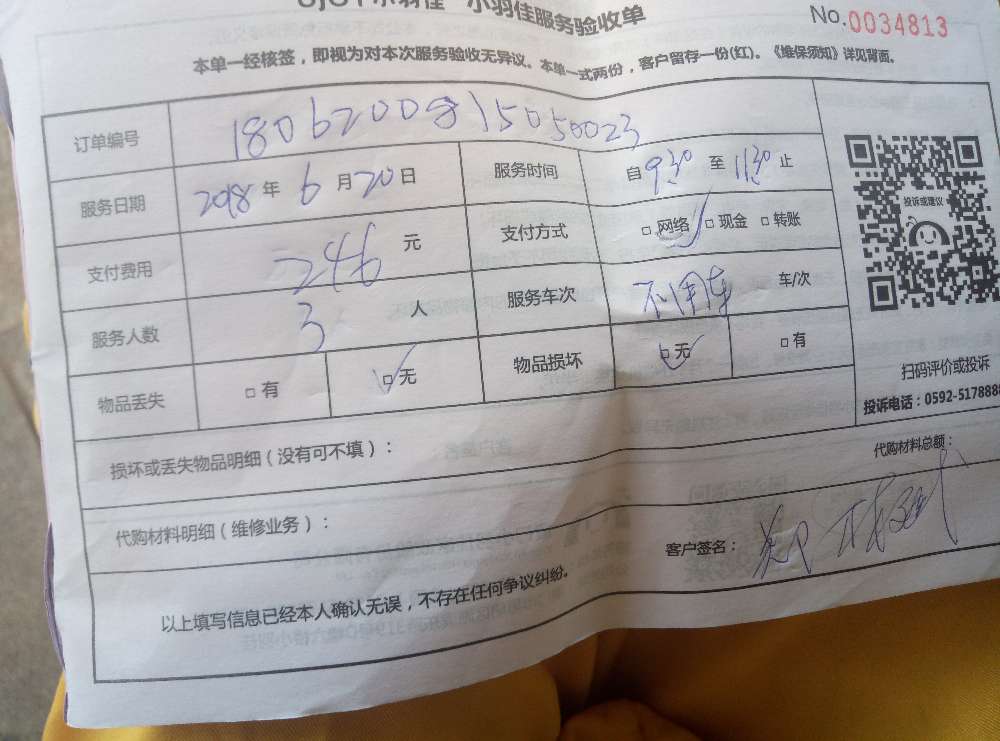 小羽佳服务验收单
No.0034813
本单一经核签，即视为对本次服务验收无异议。本单一式两份，客户留存一份(红)。《维保须知》详见背面。
订单编号 1806200815050023
服务日期 2018年6月20日 服务时间 自9:30至11:30止
支付费用 246元 支付方式 □网络 □现金 □转账
服务人数 3人 服务车次 不用车 车/次
物品丢失 □有 □无 物品损坏 □无 □有
投诉或建议
扫码评价或投诉
投诉电话：0592-5178888
损坏或丢失物品明细（没有可不填）：
代购材料总额：
代购材料明细（维修业务）：
客户签名：
以上填写信息已经本人确认无误，不存在任何争议纠纷。